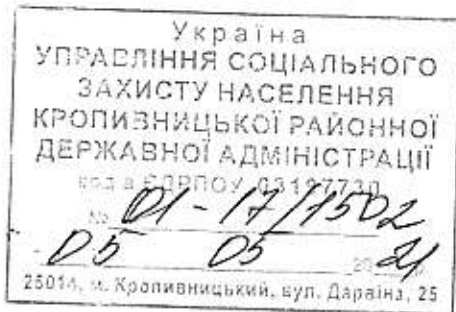 Україна
УПРАВЛІННЯ СОЦІАЛЬНОГО
ЗАХИСТУ НАСЕЛЕННЯ
КРОПИВНИЦЬКОЇ РАЙОННОЇ
ДЕРЖАВНОЇ АДМІНІСТРАЦІЇ
код в ЄДРПОУ 03197730
№ 01-17/1502
05 05 2021
25014, м. Кропивницький, вул. Дарвіна, 25